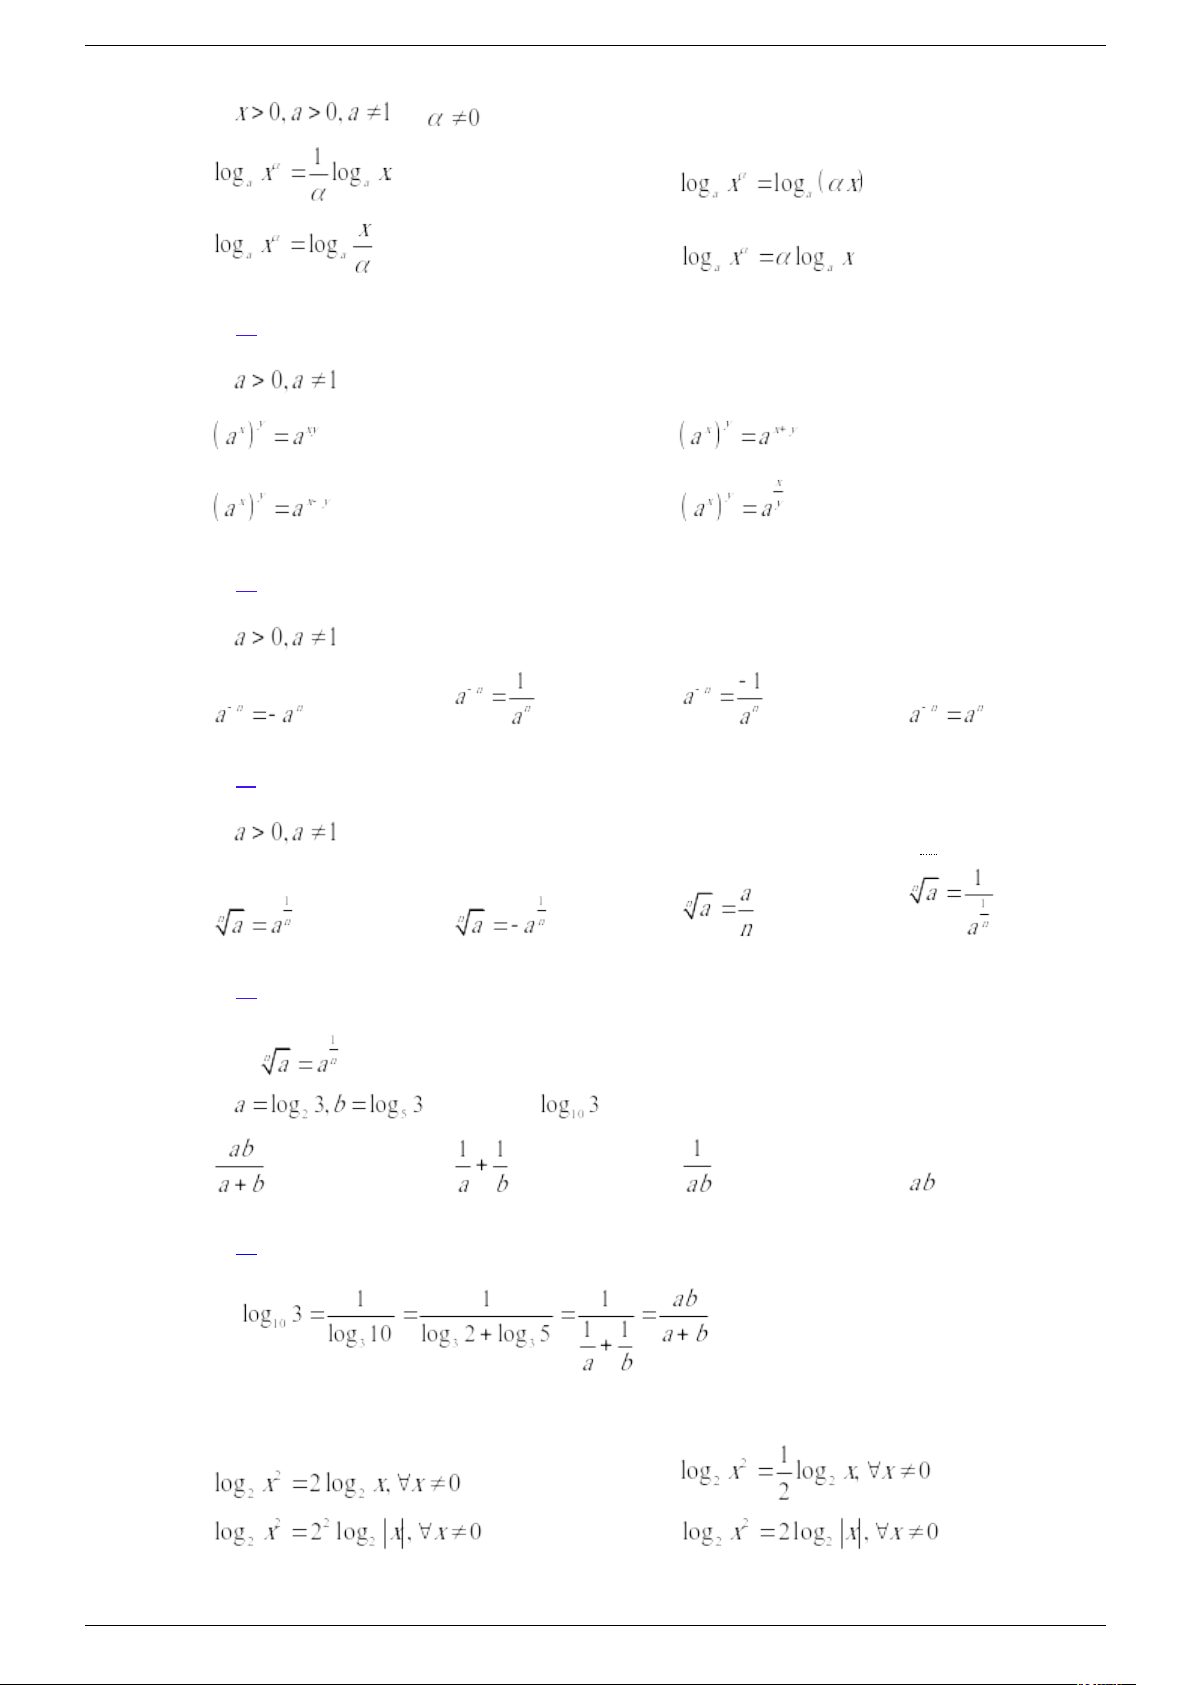 x > 0, a > 0, a ≠ 1 α ≠ 0
log_a x^α = 1/α log_a x log_a x^α = log_a (αx)
log_a x^α = log_a x/α log_a x^α = α log_a x
a > 0, a ≠ 1
(a^x)^y = a^xy (a^x)^y = a^(x+y)
(a^x)^y = a^(x-y) (a^x)^y = a^(x/y)
a > 0, a ≠ 1
a^(-n) = -a^n a^(-n) = 1/a^n a^(-n) = -1/a^n a^(-n) = a^n
a > 0, a ≠ 1
ⁿ√a = a^(1/n) ⁿ√a = -a^(1/n) ⁿ√a = a/n ⁿ√a = 1/a^(1/n)
ⁿ√a = a^(1/n)
a = log_2 3, b = log_5 3 log_10 3
ab/(a + b) 1/a + 1/b 1/ab ab
log_10 3 = 1/(log_3 10) = 1/(log_3 2 + log_3 5) = 1/(1/a + 1/b) = ab/(a + b)
log_2 x^2 = 2 log_2 x, ∀x ≠ 0 log_2 x^2 = 1/2 log_2 x, ∀x ≠ 0
log_2 x^2 = 2^2 log_2 |x|, ∀x ≠ 0 log_2 x^2 = 2 log_2 |x|, ∀x ≠ 0